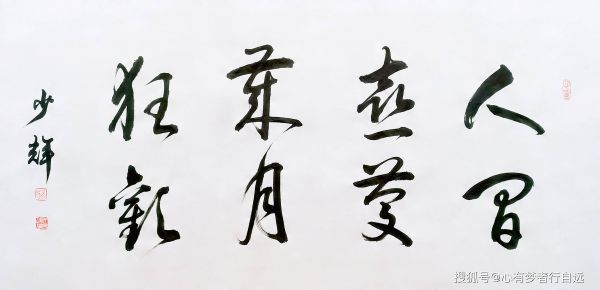 人間
歲月
狂歡
少輝
搜狐号@心有梦者行自远